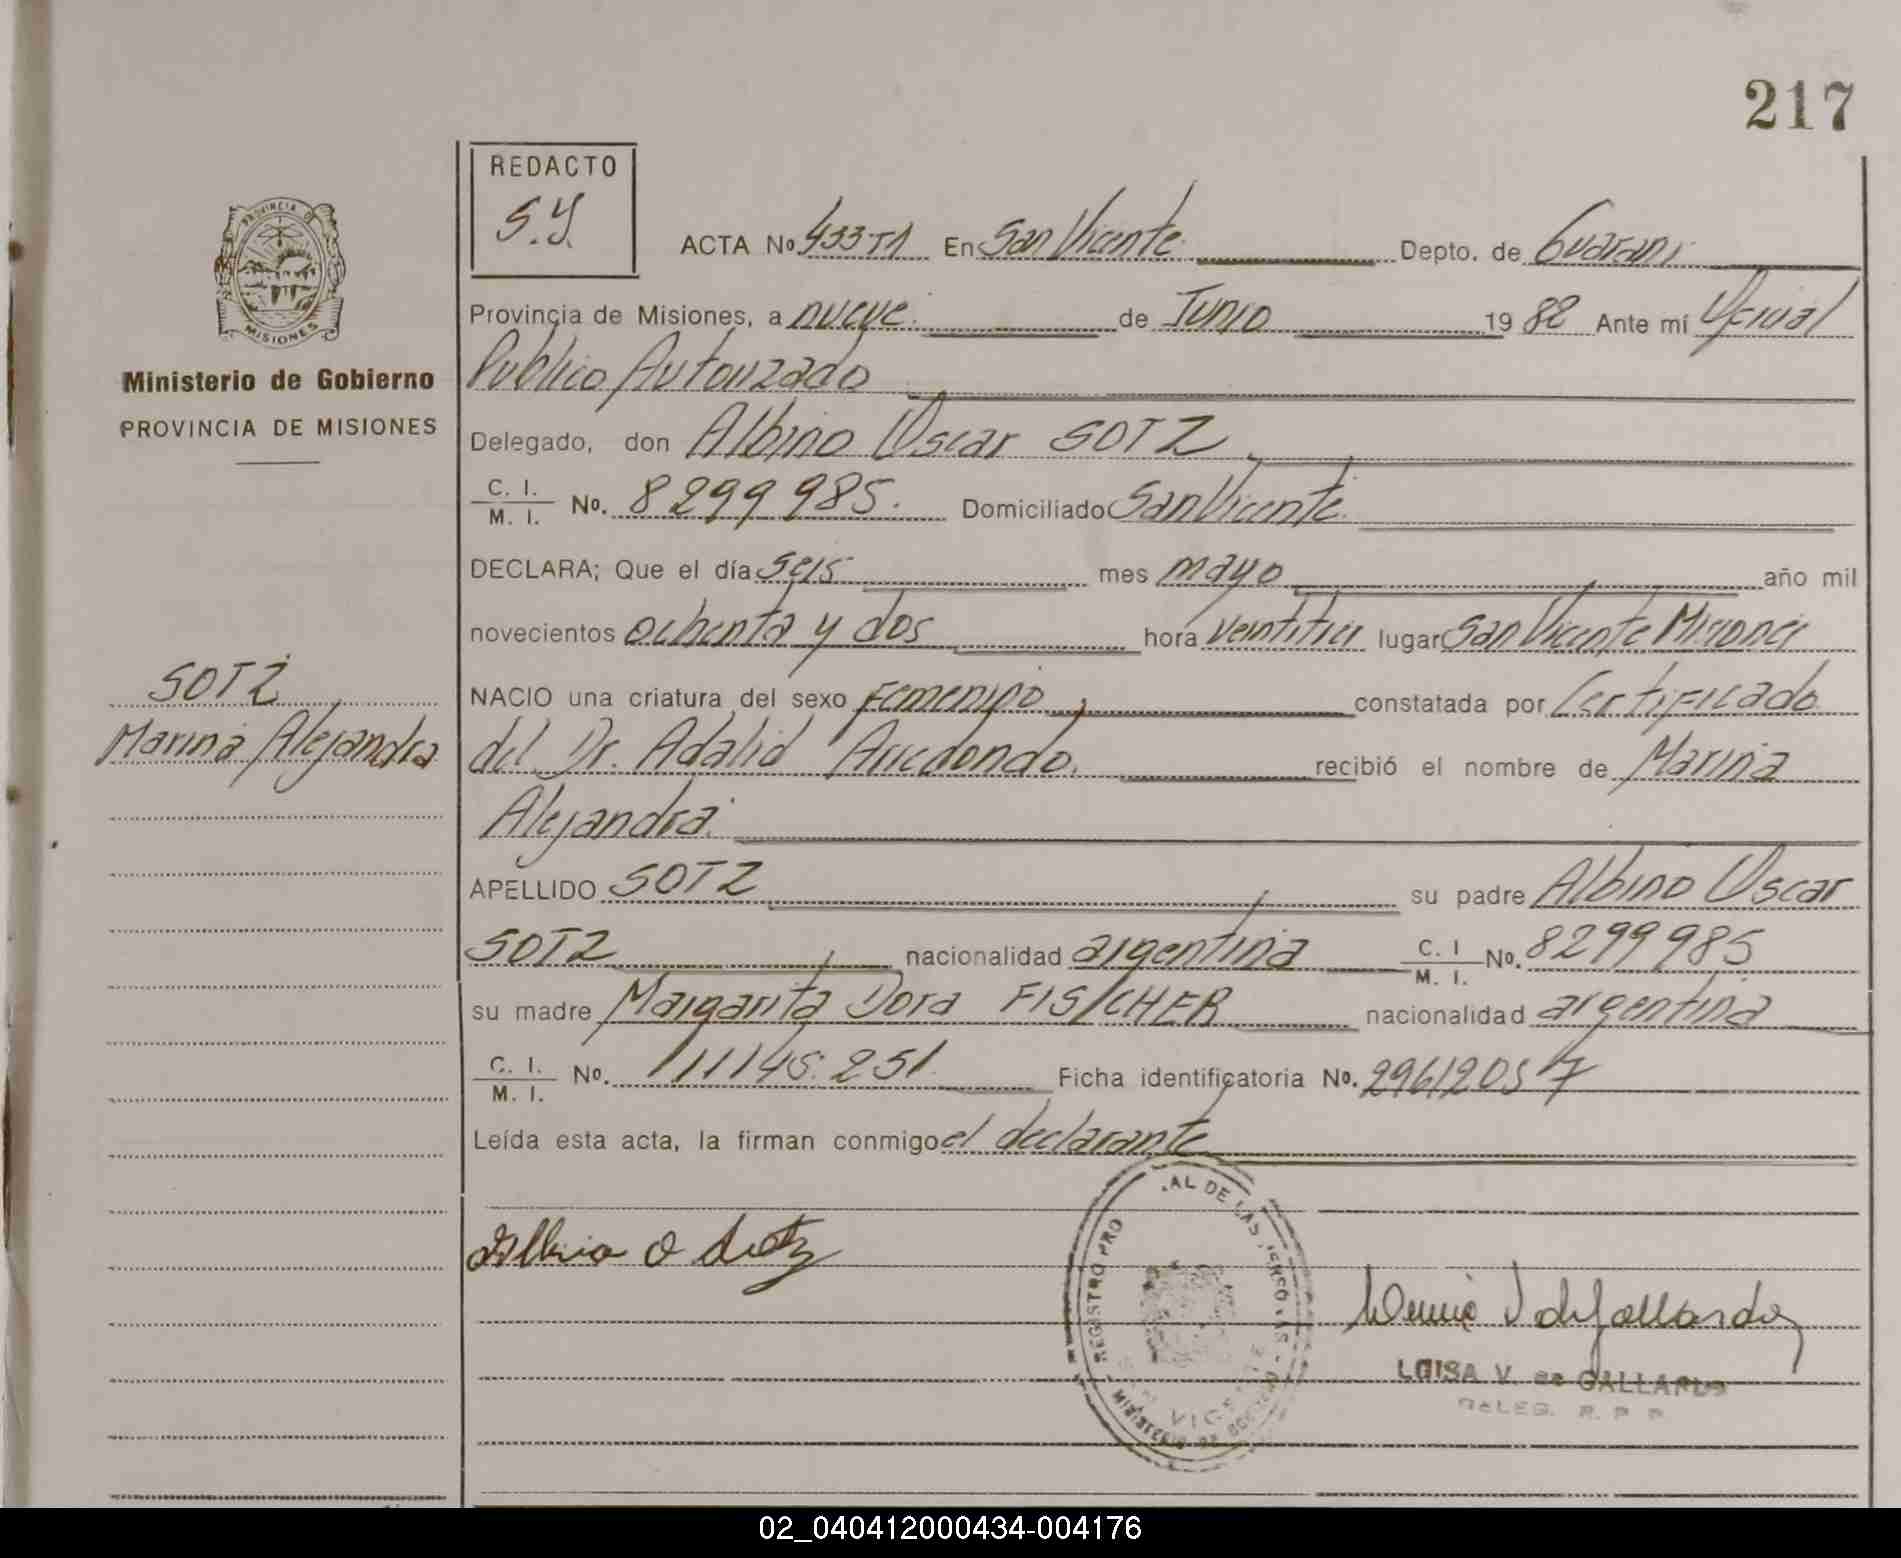 217
REDACTO
S.Y.
PROVINCIA DE
MISIONES
Ministerio de Gobierno
PROVINCIA DE MISIONES
ACTA No 433-T1 En San Vicente Depto. de Guarani
Provincia de Misiones, a nueve de Junio 19 82 Ante mí Oficial
Publico Autorizado
Delegado, don Albino Oscar SOTZ
C. I. / M. I. No. 8299985. Domiciliado San Vicente
DECLARA; Que el día seis mes mayo año mil
novecientos ochenta y dos hora veintitres lugar San Vicente Misiones
NACIO una criatura del sexo Femenino, constatada por Certificado
del Dr. Adalid Arredondo. recibió el nombre de Marina
Alejandra
APELLIDO SOTZ su padre Albino Oscar
SOTZ nacionalidad argentina C. I / M. I. No. 8299985
su madre Margarita Dora FISCHER nacionalidad argentina
C. I. / M. I. No. 11145.251 Ficha identificatoria No. 29612057
Leída esta acta, la firman conmigo el declarante
SOTZ
Marina Alejandra
Albino O Sotz
REGISTRO PRO AL DE LAS PERSONAS - MINISTERIO DE GOBIERNO
SAN VICENTE
LUISA V. de GALLARDO
DELEG. R. P. P.
02_040412000434-004176